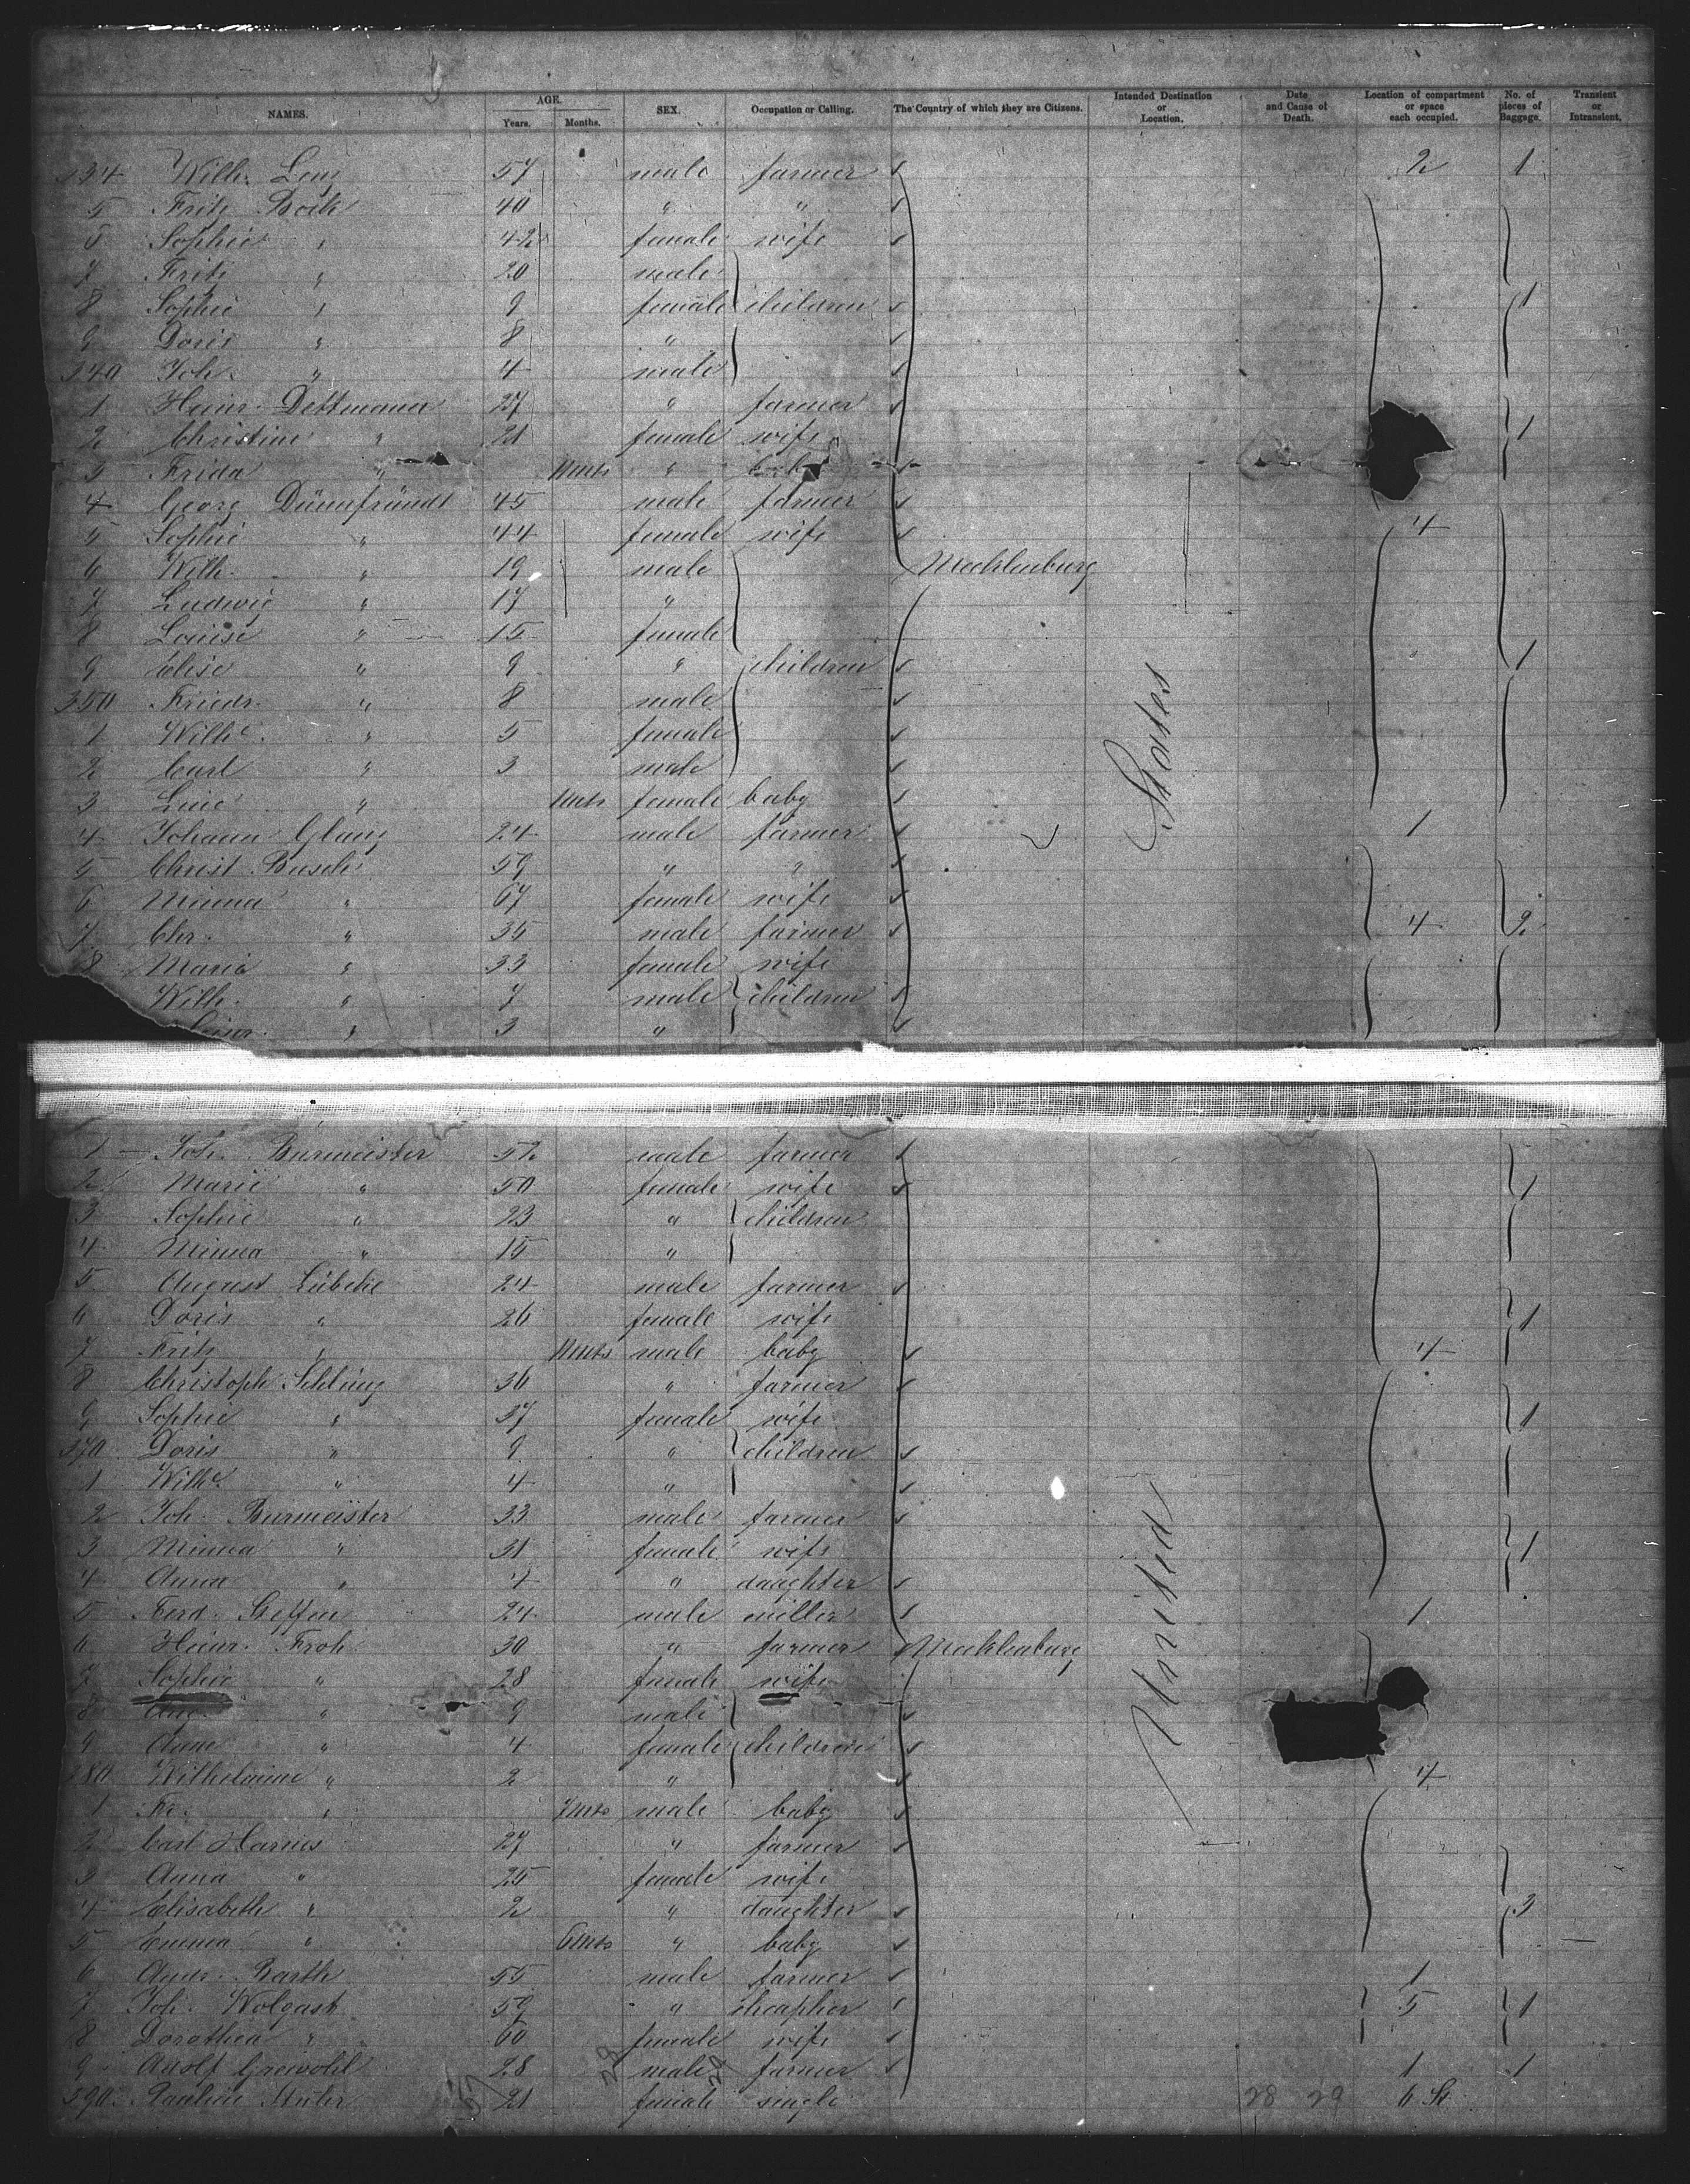 NAMES. AGE. Years. Months. SEX. Occupation or Calling. The Country of which they are Citizens. Intended Destination or Location. Date and Cause of Death. Location of compartment or space each occupied. No. of pieces of Baggage. Transient or Intransient.
334 Wilh. 57 male farmer 2 1
5 Fritz Bock 40 " "
6 Sophie " 42 female wife
7 Fritz " 20 male
8 Sophie " 9 female children 1
9 Doris " 8 "
340 Joh. " 4 male
1 Heinr. Dettmann 27 " farmer
2 Christine " 21 female wife 1
3 Frida " "
4 Georg 45 male farmer
5 Sophie " 44 female wife 4
6 Wilh. " 19 male Mecklenburg
7 Ludwig " 17 "
8 Louise " 15 female
9 Elise " 9 " children 1
350 Friedr. " 8 male
1 Wilhe. " 5 female
2 Carl " 3 male
3 Line " female baby
4 Johann 24 male farmer 1
5 Christ. Busch 59 " "
6 Minna " 67 female wife
7 Chr. " 35 male farmer 4 2
8 Maria " 33 female wife
Wilh. " 7 male children
" 3 "
States
1 Joh. Burmeister 52 male farmer
2 Marie " 50 female wife 1
3 Sophie " 23 " children
4 Minna " 15 "
5 August Lübcke 24 male farmer
6 Doris " 26 female wife 1
7 Fritz " male baby 4
8 Christoph 36 " farmer
9 Sophie " 37 female wife 1
370 Doris " 9 " children
1 Wilhe. " 4 "
2 Joh. Burmeister 33 male farmer
3 Minna " 31 female wife 1
4 Anna " 4 " daughter
5 Ferd. Steffen 24 male miller 1
6 Heinr. Froh 30 " farmer Mecklenburg
7 Sophie " 28 female wife
8 Aug. " 9 male
9 Anne " 4 female children
380 Wilhelmine " 2 " 4
1 Fr. " 7 mts male baby
2 Carl Harms 27 " farmer
3 Anna " 25 female wife
4 Elisabeth " 2 " daughter 3
5 Emma " 6 mts " baby
6 Andr. Barth 55 male farmer 1
7 Joh. Wolgast 59 " 5 1
8 Dorothea " 60 female wife
9 Adolf 28 male farmer 1 1
390 Pauline 21 female single 28 29 6 St.
United